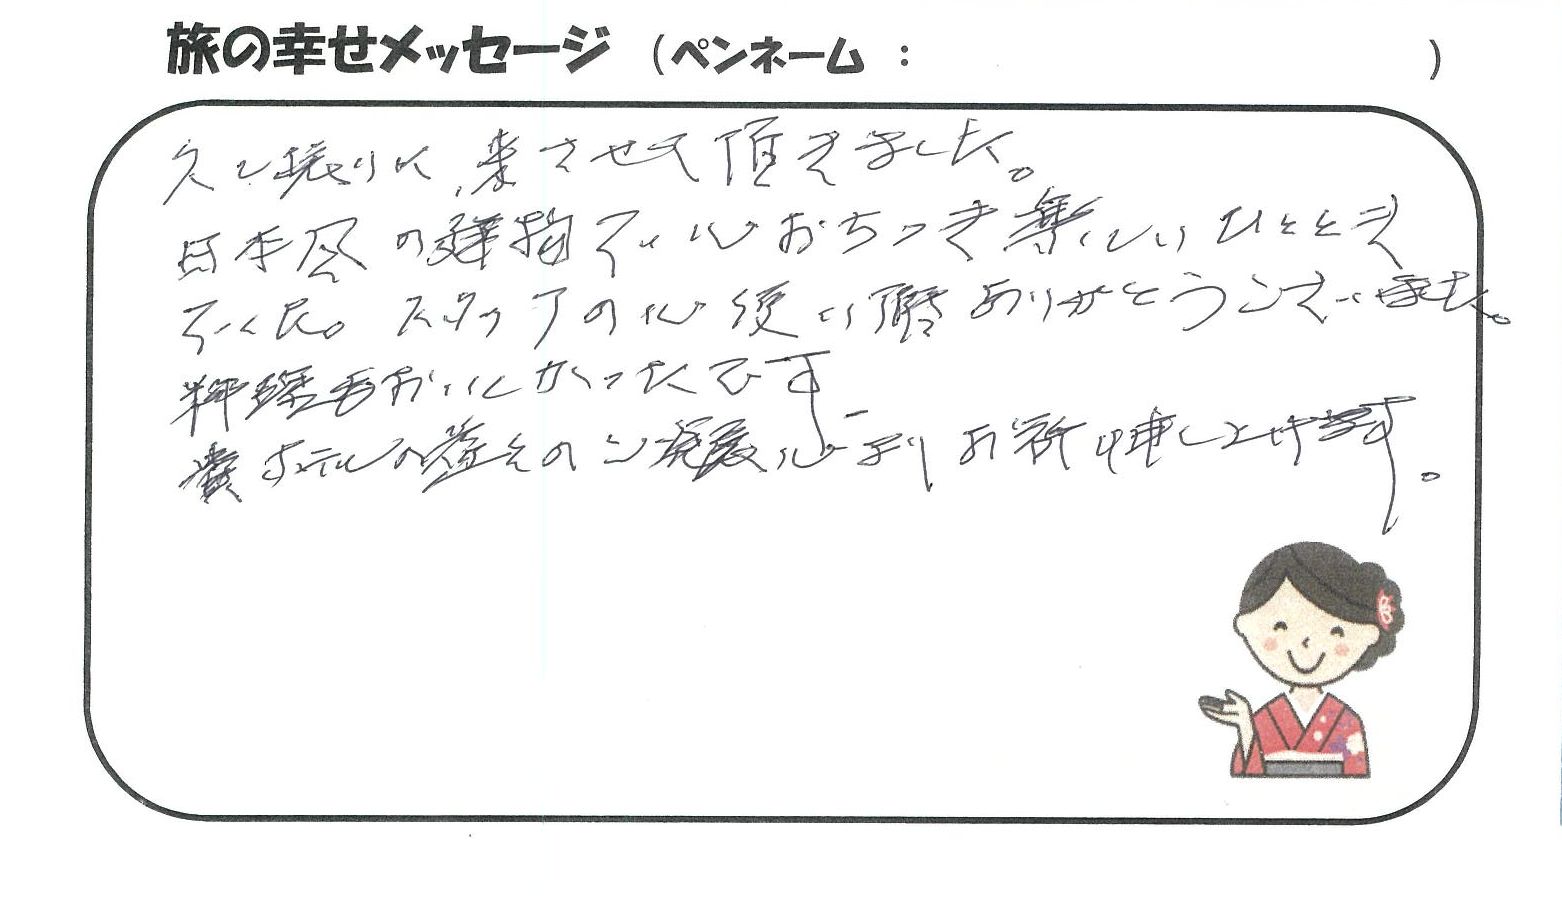 旅の幸せメッセージ （ペンネーム： ）
久し振りに、来させて頂きました。
日本風の建物で心おちつき楽しいひととき
でした。スタッフの心使い ありがとうございました。
料理もおいしかったです
貴ホテルの益々のご発展心よりお祈り申し上げます。